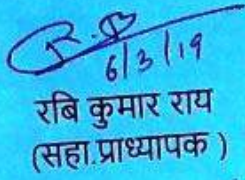 R.B
6/3/19
रबि कुमार राय
(सहा.प्राध्यापक )